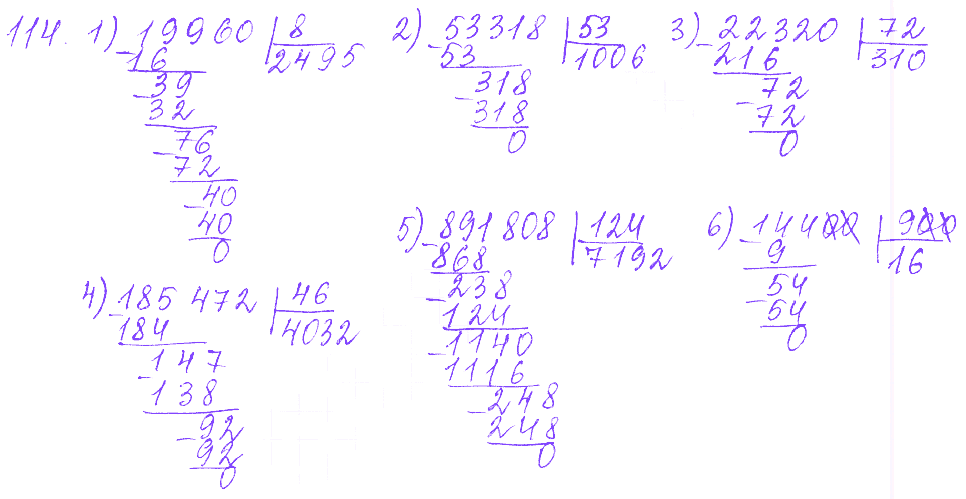 114. 1) 19960 | 8
-16 2495
-39
32
-76
72
-40
40
0
2) 53318 | 53
-53 1006
-318
318
0
3) 22320 | 72
-216 310
-72
72
0
4) 185 472 | 46
-184 4032
-147
138
-92
92
0
5) 891 808 | 124
-868 7192
-238
124
-1140
1116
-248
248
0
6) 14400 | 900
-9 16
-54
54
0